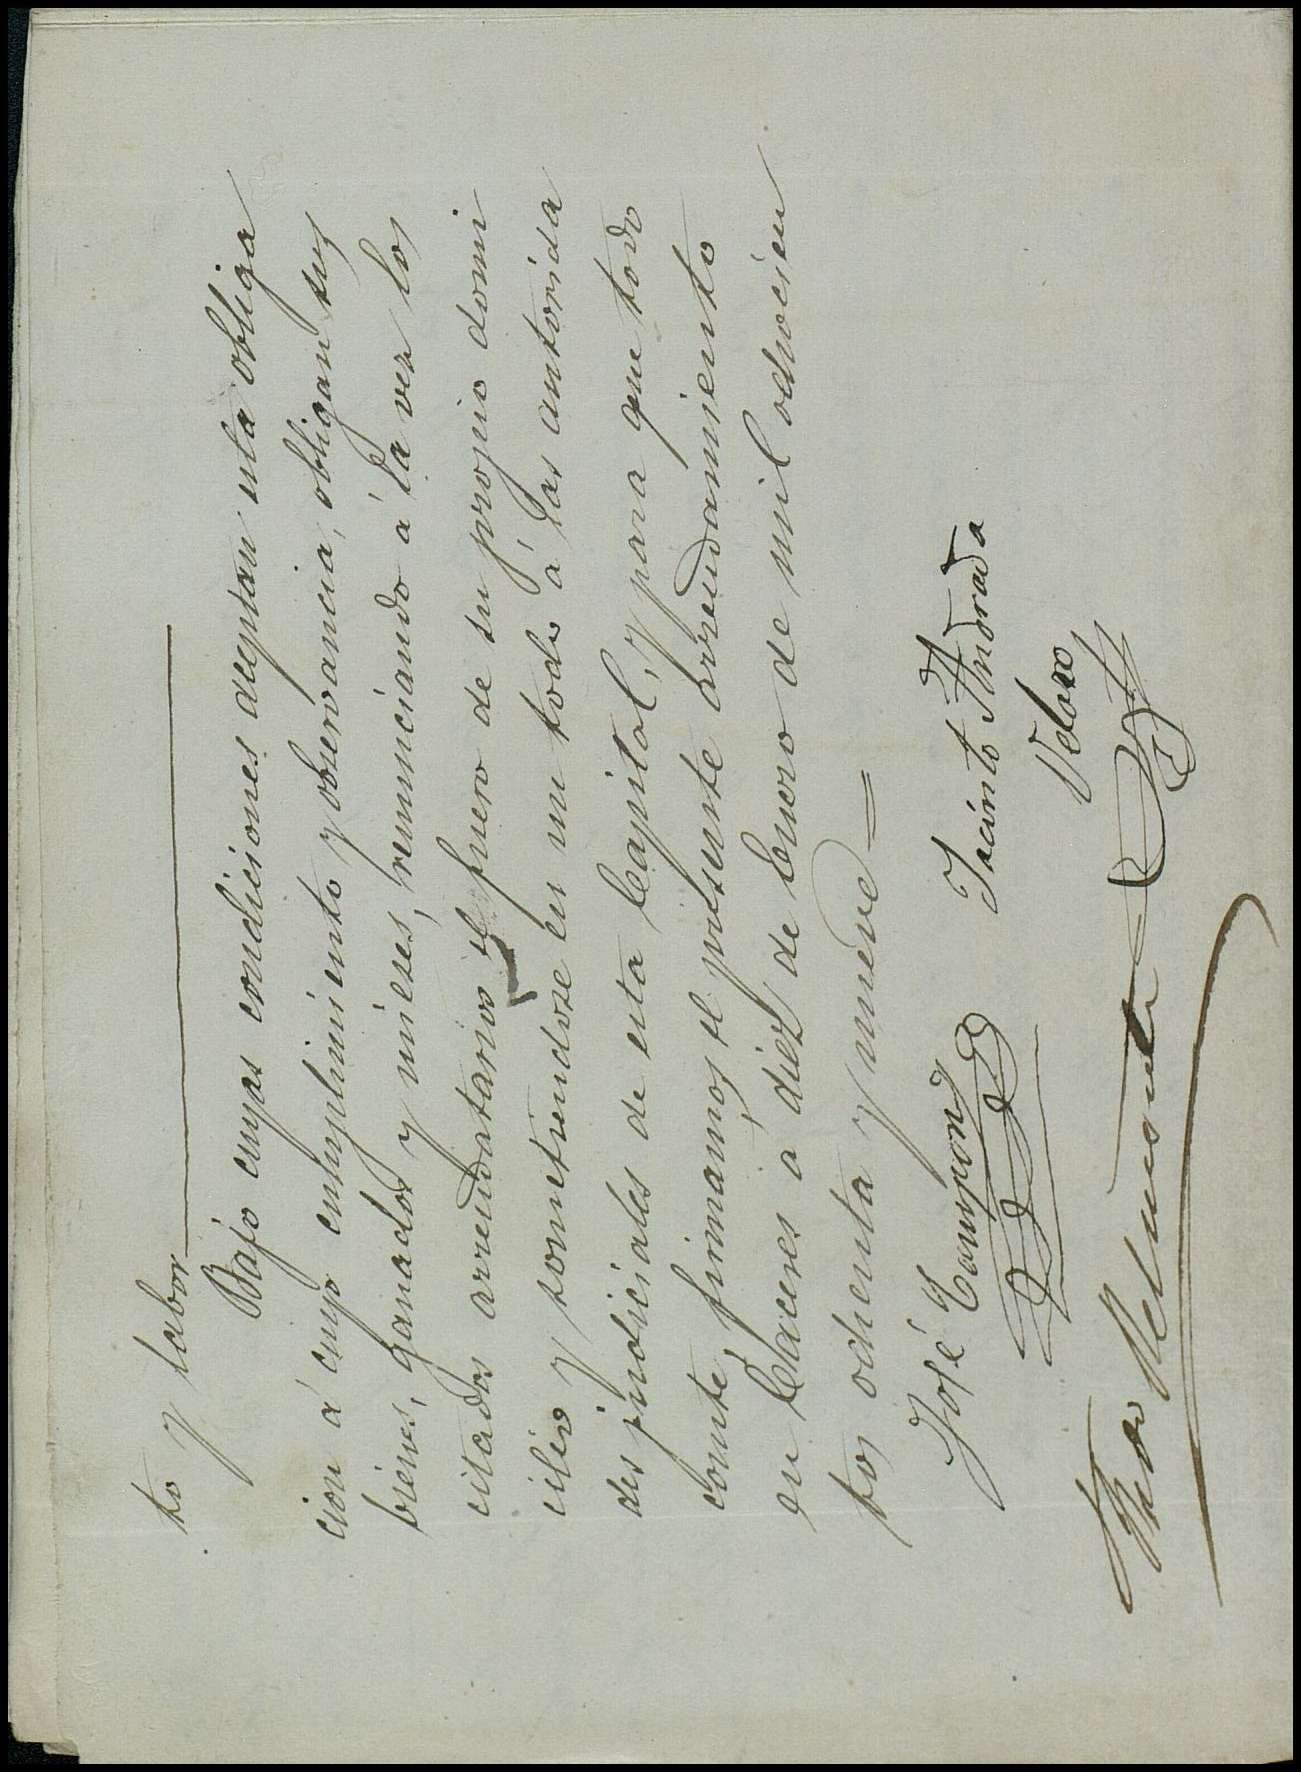 to y labor
Bajo cuyas condiciones aceptan esta obliga
cion á cuyo cumplimiento y observancia, obligan sus
bienes, ganados y mieses, renunciando á la vez los
citados arrendatarios el fuero de su propio domi
cilio y sometiendose en un todo á las autorida
des judiciales de esta Capital, y para que todo
conste, firmamos el presente arrendamiento
en Cáceres á diez de Enero de mil ochocien
tos ochenta y nueve =
José Campon
Jacinto Andrada
Veloso